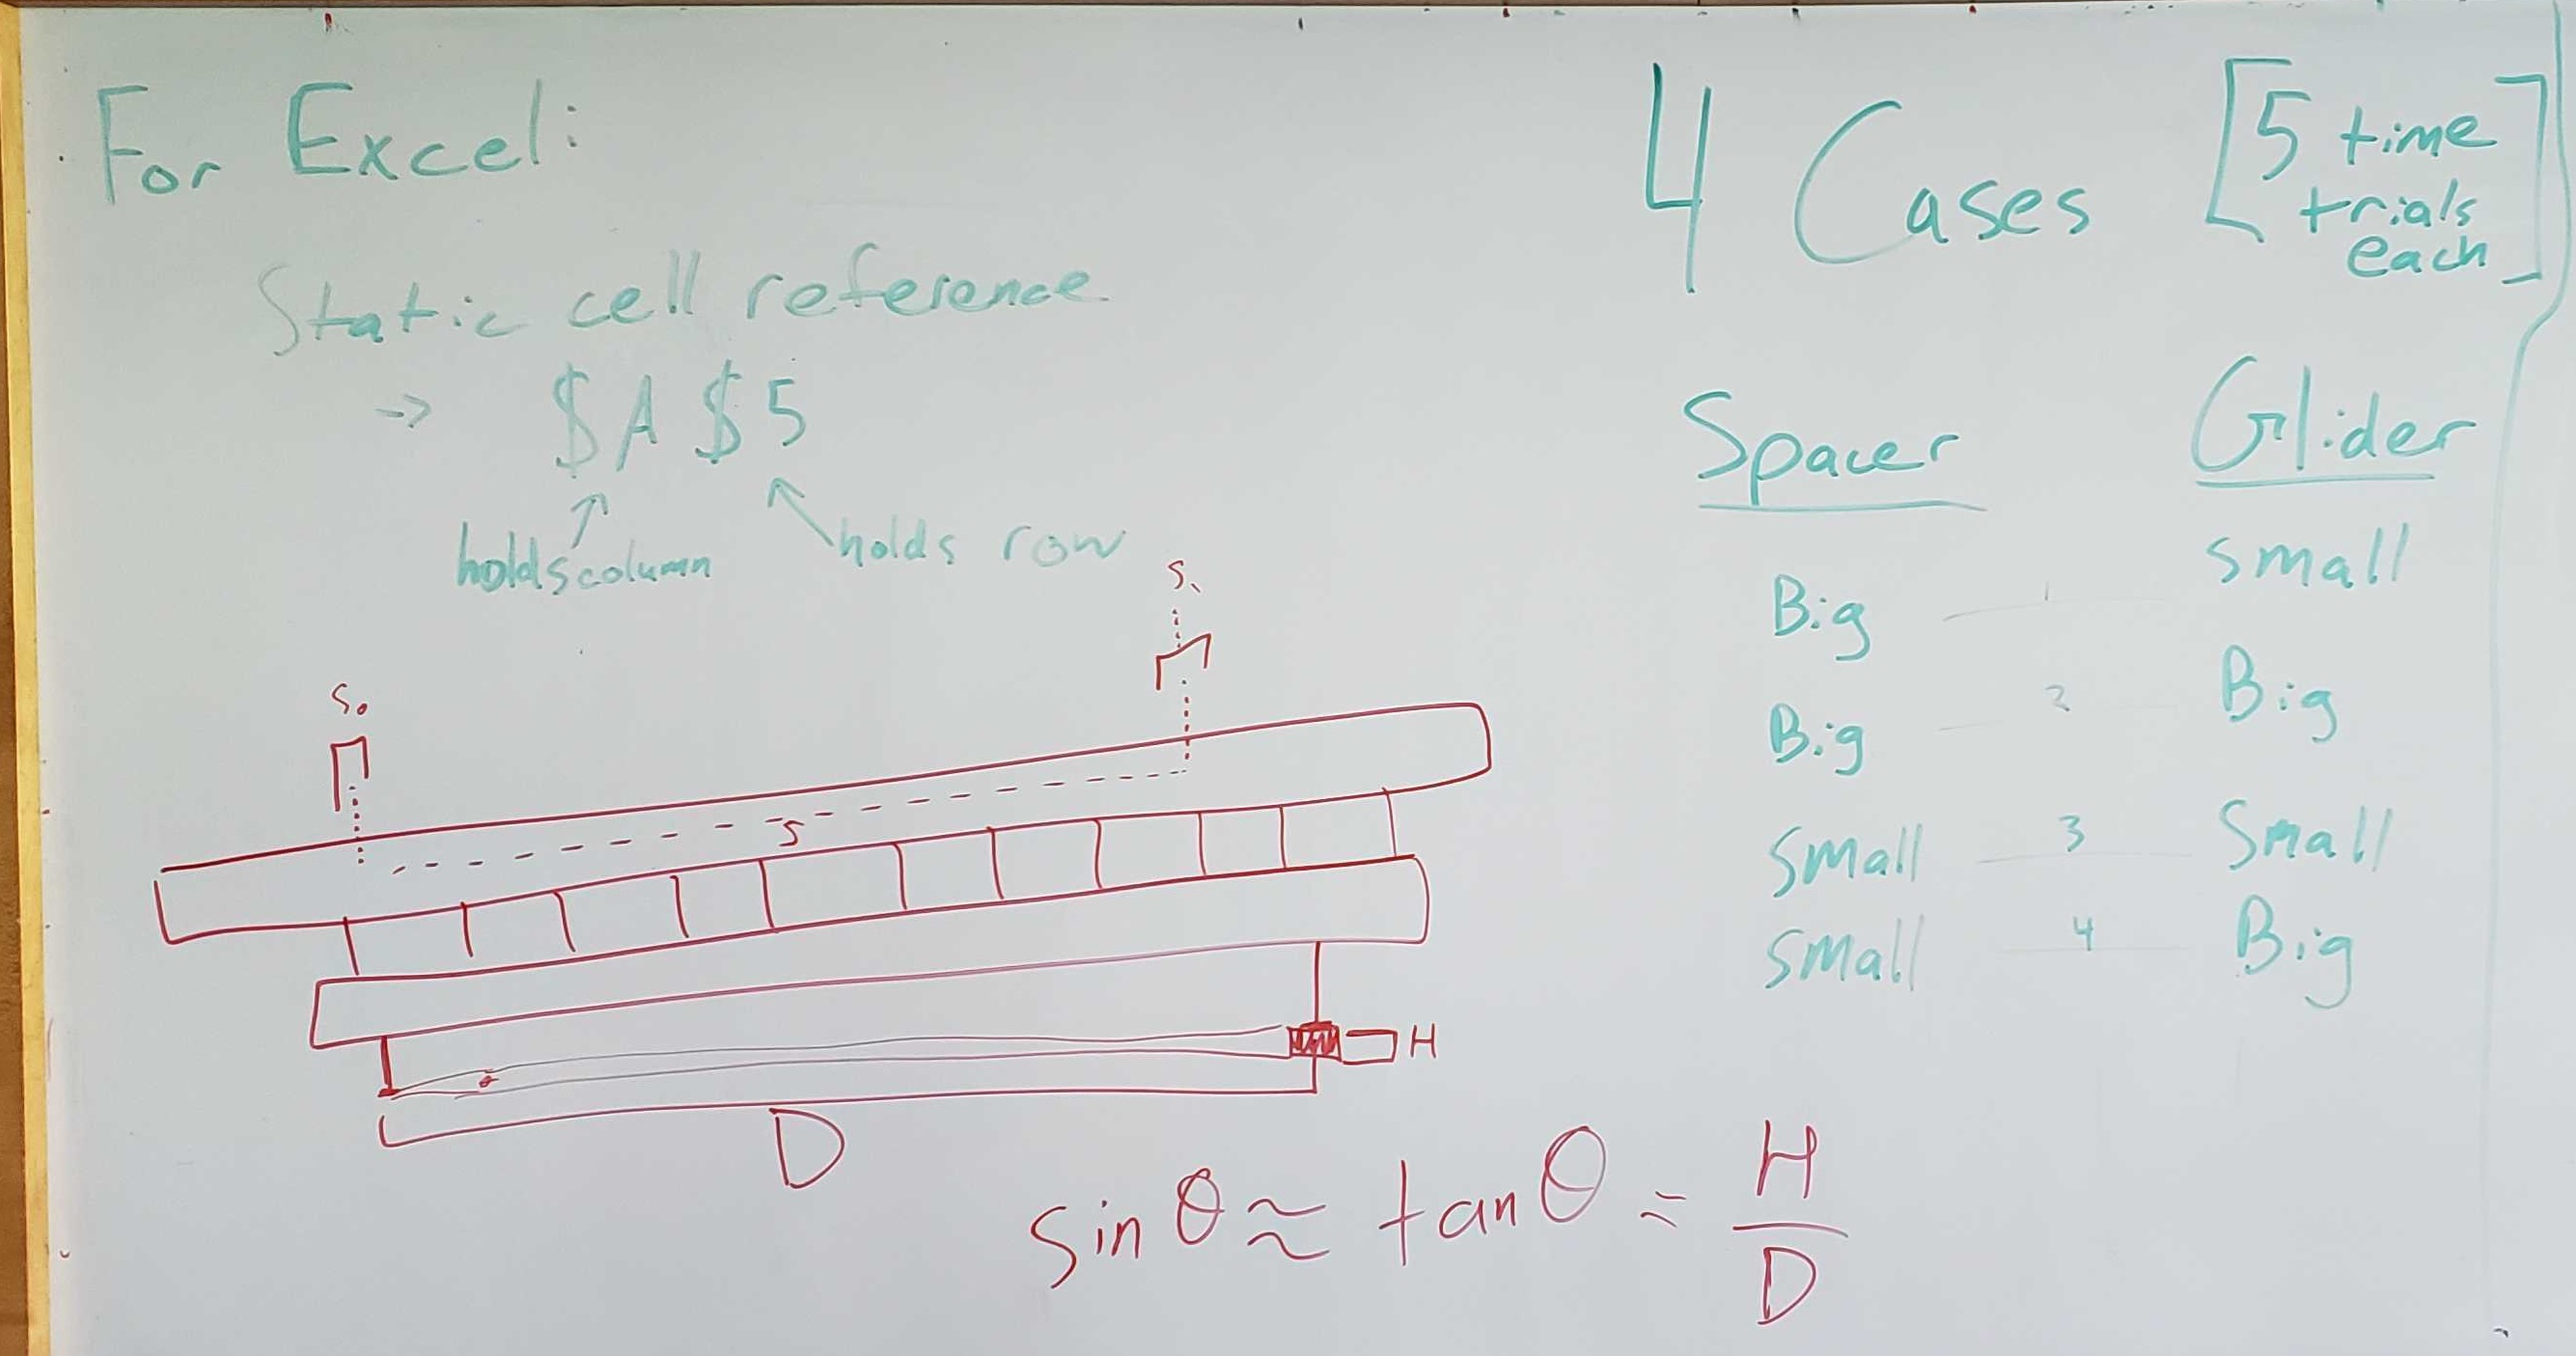 For Excel:
Static cell reference
-> $A$5
holds column
holds row
S₀
S₁
S
θ
H
D
sin θ ≈ tan θ = H/D
4 Cases [5 time
trials
each]
Spacer Glider
Big 1 small
Big 2 Big
small 3 Small
small 4 Big